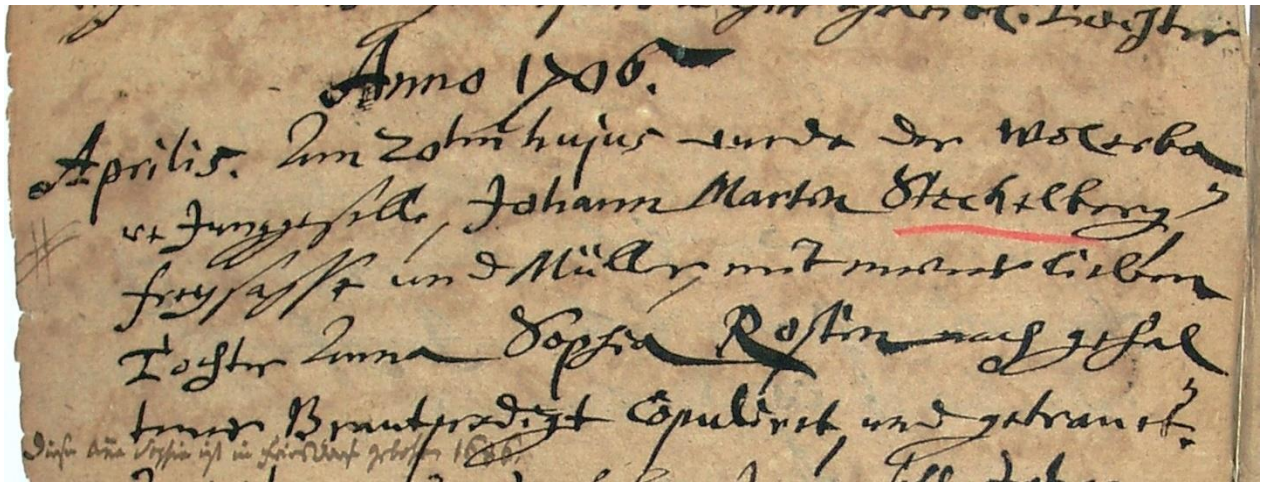 Tochter
Anno 1706.
Aprilis. Am 20tm hujus wurde der Wolerba
re Junggeselle, Johann Marten Stechelberg
freysasse und Müller, mit meiner lieben
Tochter Anna Sophia Rosin nach gehal
tener Brautpredigt Copuliret und getrauet.
Diese Aña Sophia ist in geboren 1686.